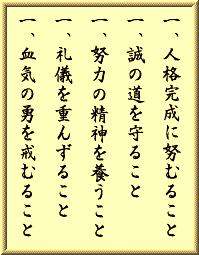 一、人格完成に努むること
一、誠の道を守ること
一、努力の精神を養うこと
一、礼儀を重んずること
一、血気の勇を戒むること